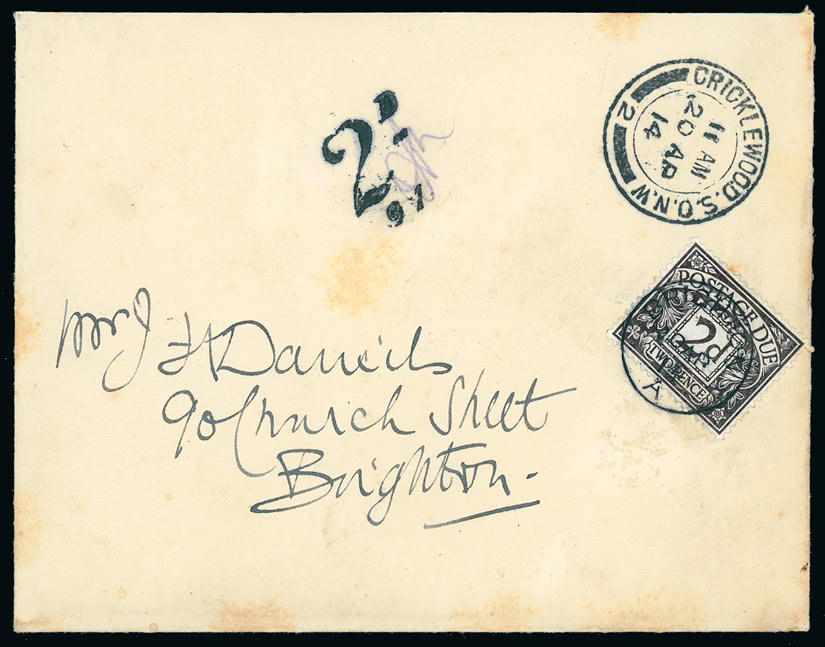 2D.
91
CRICKLEWOOD. S.O. N.W
11 AM
20 AP
14
2
POSTAGE DUE
2d
TWO PENCE
BRIGHTON
A
Mr J H Daniels
90 Church Street
Brighton.